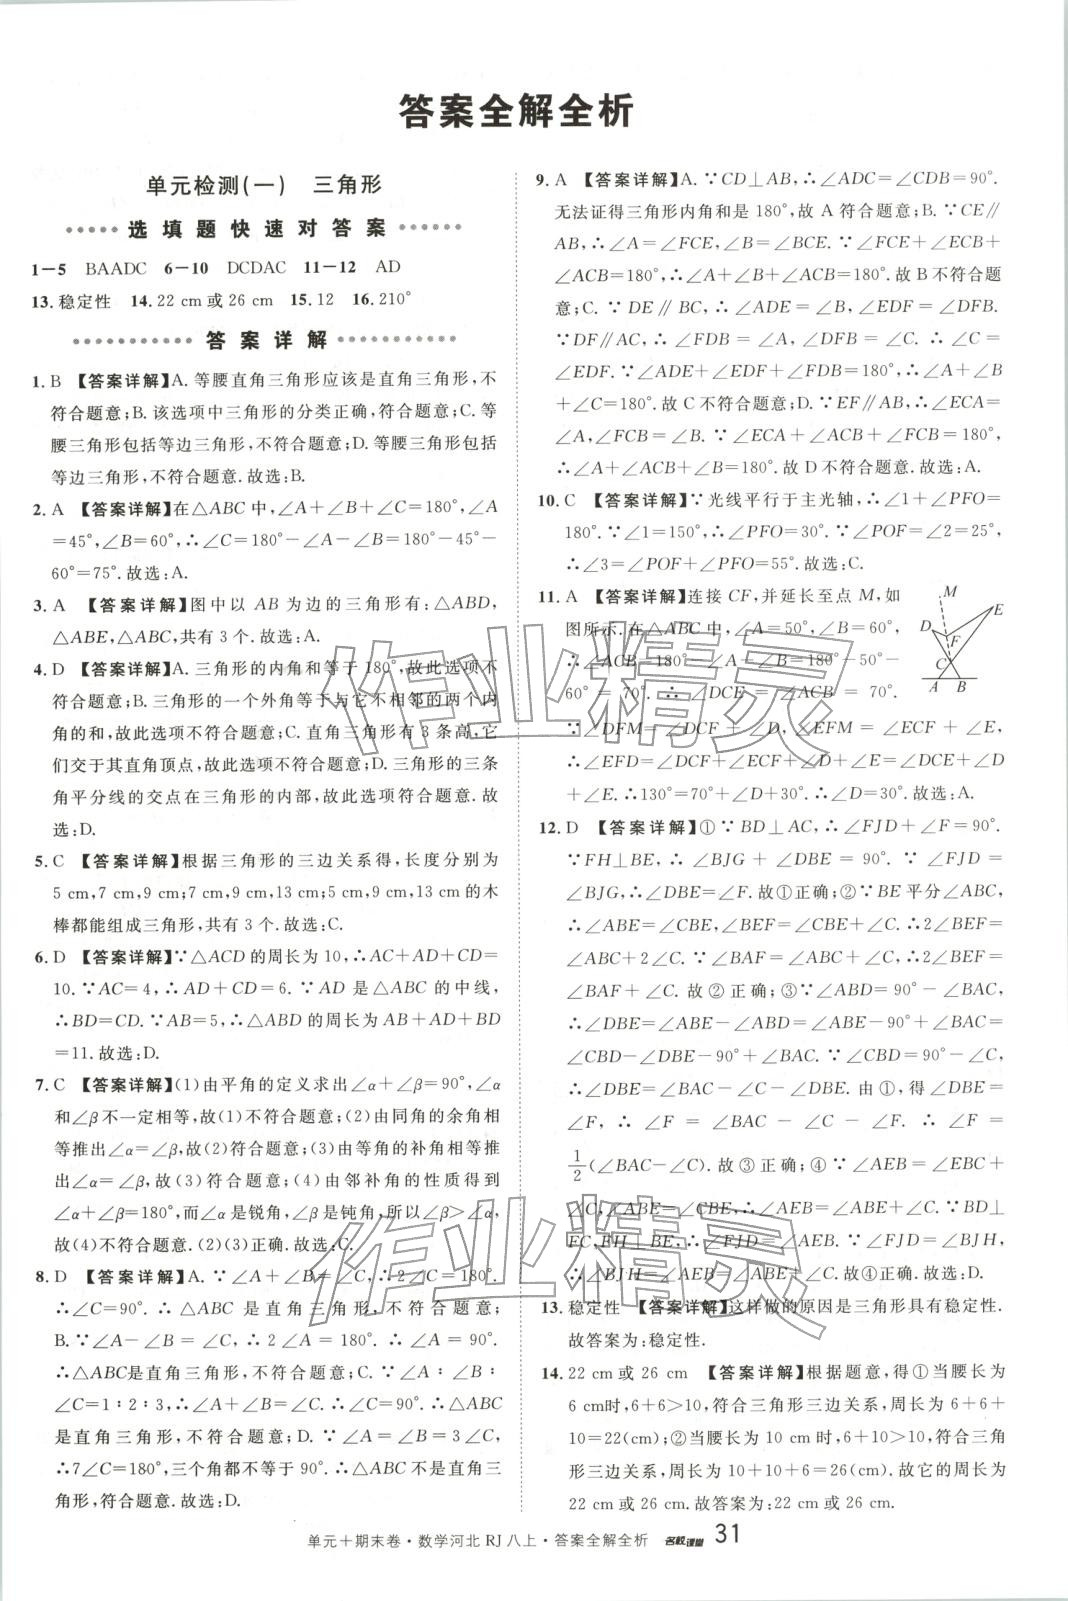 答案全解全析
单元检测(一)　三角形
选填题快速对答案
1－5　BAADC　6－10　DCDAC　11－12　AD
13.稳定性　14.22 cm或26 cm　15.12　16.210°
答案详解
1. B　【答案详解】A. 等腰直角三角形应该是直角三角形,不
符合题意;B. 该选项中三角形的分类正确,符合题意;C. 等
腰三角形包括等边三角形,不符合题意;D. 等腰三角形包括
等边三角形,不符合题意.故选:B.
2. A　【答案详解】在△ABC中,∠A＋∠B＋∠C＝180°,∠A
＝45°,∠B＝60°,∴∠C＝180°－∠A－∠B＝180°－45°－
60°＝75°.故选:A.
3. A　【答案详解】图中以 AB 为边的三角形有:△ABD,
△ABE,△ABC,共有 3 个.故选:A.
4. D　【答案详解】A. 三角形的内角和等于180°,故此选项不
符合题意;B. 三角形的一个外角等于与它不相邻的两个内
角的和,故此选项不符合题意;C. 直角三角形有 3 条高,它
们交于其直角顶点,故此选项不符合题意;D. 三角形的三条
角平分线的交点在三角形的内部,故此选项符合题意.故
选:D.
5. C　【答案详解】根据三角形的三边关系得,长度分别为
5 cm,7 cm,9 cm;7 cm,9 cm,13 cm;5 cm,9 cm,13 cm的木
棒都能组成三角形,共有 3 个.故选:C.
6. D　【答案详解】∵△ACD的周长为10,∴AC＋AD＋CD＝
10.∵AC＝4,∴AD＋CD＝6.∵AD 是△ABC 的中线,
∴BD＝CD.∵AB＝5,∴△ABD的周长为AB＋AD＋BD
＝11.故选:D.
7. C　【答案详解】(1)由平角的定义求出∠α＋∠β＝90°,∠α
和∠β不一定相等,故(1)不符合题意;(2)由同角的余角相
等推出∠α＝∠β,故(2)符合题意;(3)由等角的补角相等推
出∠α＝∠β,故(3)符合题意;(4)由邻补角的性质得到
∠α＋∠β＝180°,而∠α是锐角,∠β是钝角,所以∠β＞∠α,
故(4)不符合题意.(2)(3)正确.故选:C.
8. D　【答案详解】A.∵∠A＋∠B＝∠C,∴2∠C＝180°.
∴∠C＝90°.∴△ABC 是直角三角形,不符合题意;
B.∵∠A－∠B＝∠C,∴2∠A＝180°.∴∠A＝90°.
∴△ABC是直角三角形,不符合题意;C.∵∠A∶∠B∶
∠C＝1∶2∶3,∴∠A＋∠B＝∠C.∴∠C＝90°.∴△ABC
是直角三角形,不符合题意;D.∵∠A＝∠B＝3∠C,
∴7∠C＝180°,三个角都不等于90°.∴△ABC不是直角三
角形,符合题意.故选:D.
9. A　【答案详解】A.∵CD⊥AB,∴∠ADC＝∠CDB＝90°.
无法证得三角形内角和是180°,故 A 符合题意;B.∵CE∥
AB,∴∠A＝∠FCE,∠B＝∠BCE.∵∠FCE＋∠ECB＋
∠ACB＝180°,∴∠A＋∠B＋∠ACB＝180°.故B不符合题
意;C.∵DE∥BC,∴∠ADE＝∠B,∠EDF＝∠DFB.
∵DF∥AC,∴∠FDB＝∠A,∠DFB＝∠C.∴∠C＝
∠EDF.∵∠ADE＋∠EDF＋∠FDB＝180°,∴∠A＋∠B
＋∠C＝180°.故 C 不符合题意;D.∵EF∥AB,∴∠ECA＝
∠A,∠FCB＝∠B.∵∠ECA＋∠ACB＋∠FCB＝180°,
∴∠A＋∠ACB＋∠B＝180°.故 D 不符合题意.故选:A.
10. C　【答案详解】∵光线平行于主光轴,∴∠1＋∠PFO＝
180°.∵∠1＝150°,∴∠PFO＝30°.∵∠POF＝∠2＝25°,
∴∠3＝∠POF＋∠PFO＝55°.故选:C.
11. A　【答案详解】连接CF,并延长至点M,如
图所示.在△ABC中,∠A＝50°,∠B＝60°,
∴∠ACB＝180°－∠A－∠B＝180°－50°－
60°＝70°.∴∠DCE＝∠ACB＝70°.
∵∠DFM＝∠DCF＋∠D,∠EFM＝∠ECF＋∠E,
∴∠EFD＝∠DCF＋∠ECF＋∠D＋∠E＝∠DCE＋∠D
＋∠E.∴130°＝70°＋∠D＋30°.∴∠D＝30°.故选:A.
M
E
D
F
C
A B
12. D　【答案详解】①∵BD⊥AC,∴∠FJD＋∠F＝90°.
∵FH⊥BE,∴∠BJG＋∠DBE＝90°.∵∠FJD＝
∠BJG,∴∠DBE＝∠F.故①正确;②∵BE平分∠ABC,
∴∠ABE＝∠CBE,∠BEF＝∠CBE＋∠C.∴2∠BEF＝
∠ABC＋2∠C.∵∠BAF＝∠ABC＋∠C,∴2∠BEF＝
∠BAF＋∠C.故②正确;③∵∠ABD＝90°－∠BAC,
∴∠DBE＝∠ABE－∠ABD＝∠ABE－90°＋∠BAC＝
∠CBD－∠DBE－90°＋∠BAC.∵∠CBD＝90°－∠C,
∴∠DBE＝∠BAC－∠C－∠DBE.由①,得∠DBE＝
∠F,∴∠F＝∠BAC－∠C－∠F.∴∠F＝
1/2(∠BAC－∠C).故③正确;④∵∠AEB＝∠EBC＋
∠C,∠ABE＝∠CBE,∴∠AEB＝∠ABE＋∠C.∵BD⊥
FC,FH⊥BE,∴∠FJD＝∠AEB.∵∠FJD＝∠BJH,
∴∠BJH＝∠AEB＝∠ABE＋∠C.故④正确.故选:D.
13. 稳定性　【答案详解】这样做的原因是三角形具有稳定性.
故答案为:稳定性.
14. 22 cm或26 cm　【答案详解】根据题意,得①当腰长为
6 cm时,6＋6＞10,符合三角形三边关系,周长为6＋6＋
10＝22(cm);②当腰长为 10 cm时,6＋10＞10,符合三角
形三边关系,周长为10＋10＋6＝26(cm).故它的周长为
22 cm或26 cm.故答案为:22 cm或26 cm.
单元＋期末卷・数学河北 RJ 八上・答案全解全析　名校课堂　31
作业精灵
作业精灵